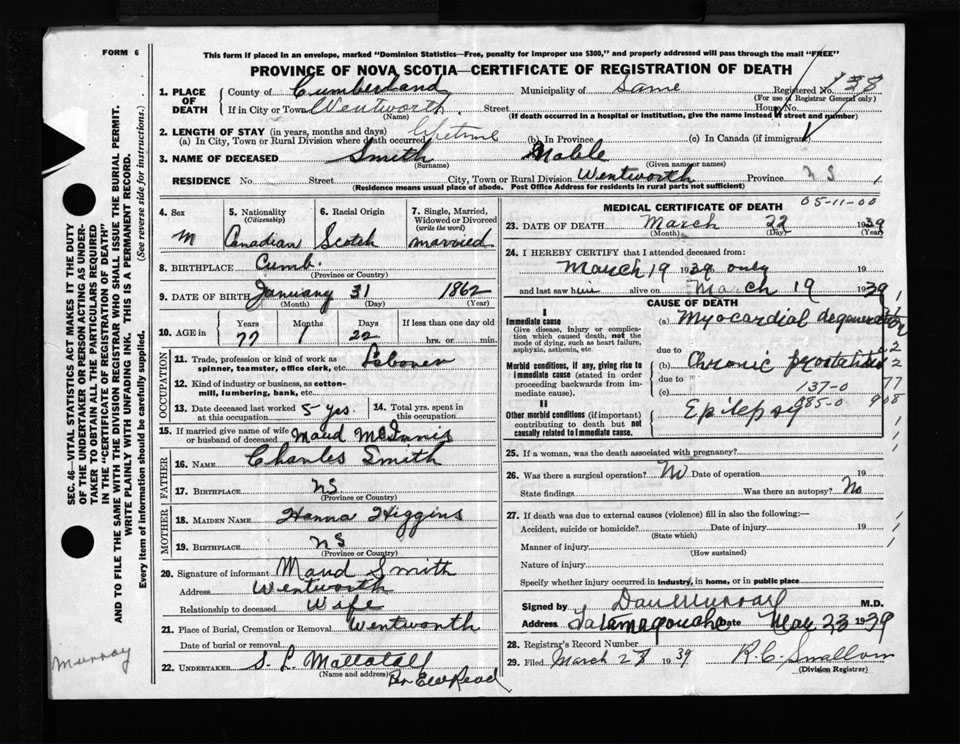 FORM 6
This form if placed in an envelope, marked "Dominion Statistics—Free, penalty for improper use $300," and properly addressed will pass through the mail "FREE"
PROVINCE OF NOVA SCOTIA—CERTIFICATE OF REGISTRATION OF DEATH
1. PLACE OF DEATH
County of Cumberland Municipality of Same Registered No.
(For use of Registrar General only)
If in City or Town Wentworth Street House No.
(Name) (If death occurred in a hospital or institution, give the name instead of street and number)
2. LENGTH OF STAY (in years, months and days)
(a) In City, Town or Rural Division where death occurred Lifetime (b) In Province (c) In Canada (if immigrant)
3. NAME OF DECEASED Smith Noble
(Surname) (Given name or names)
RESIDENCE No. Street City, Town or Rural Division Wentworth Province N S
(Residence means usual place of abode. Post Office Address for residents in rural parts not sufficient)
4. Sex M
5. Nationality (Citizenship) Canadian
6. Racial Origin Scotch
7. Single, Married, Widowed or Divorced (write the word) married
8. BIRTHPLACE Cumb.
(Province or Country)
9. DATE OF BIRTH January 31 1862
(Month) (Day) (Year)
10. AGE in Years Months Days If less than one day
77 1 22 hrs. or min.
OCCUPATION
11. Trade, profession or kind of work as spinner, teamster, office clerk, etc. Laborer
12. Kind of industry or business, as cotton-mill, lumbering, bank, etc.
13. Date deceased last worked at this occupation 5 yrs.
14. Total yrs. spent in this occupation
15. If married give name of wife or husband of deceased Maud McInnis
FATHER
16. NAME Charles Smith
17. BIRTHPLACE NS
(Province or Country)
MOTHER
18. MAIDEN NAME Hanna Higgins
19. BIRTHPLACE NS
(Province or Country)
20. Signature of informant Maud Smith
Address Wentworth
Relationship to deceased Wife
21. Place of Burial, Cremation or Removal Wentworth
Date of burial or removal
22. UNDERTAKER S. L. Mattatall
(Name and address)
MEDICAL CERTIFICATE OF DEATH 05-11-00
23. DATE OF DEATH March 22 1939
(Month) (Day) (Year)
24. I HEREBY CERTIFY that I attended deceased from:
March 19 1939 only 19
and last saw him alive on March 19 1939
CAUSE OF DEATH
I
Immediate cause
Give disease, injury or complication which caused death, not the mode of dying, such as heart failure, asphyxia, asthenia, etc
(a) Myocardial degeneration
due to
Morbid conditions, if any, giving rise to immediate cause (stated in order proceeding backwards from immediate cause).
(b) Chronic prostatitis
due to
(c) 137-0
II
Other morbid conditions (if important) contributing to death but not causally related to immediate cause.
Epilepsy 085-0 908
25. If a woman, was the death associated with pregnancy?
26. Was there a surgical operation? No Date of operation 19
State findings Was there an autopsy? No
27. If death was due to external causes (violence) fill in also the following:—
Accident, suicide or homicide? Date of injury 19
(State which)
Manner of injury
(How sustained)
Nature of injury
Specify whether injury occurred in industry, in home, or in public place
Signed by Dan Murray M.D.
Address Tatamagouche Date 23 1939
28. Registrar's Record Number
29. Filed March 1939
(Division Registrar)
Murray
SEC. 46—VITAL STATISTICS ACT MAKES IT THE DUTY
OF THE UNDERTAKER OR PERSON ACTING AS UNDER-
TAKER TO OBTAIN ALL THE PARTICULARS REQUIRED
IN THE "CERTIFICATE OF REGISTRATION OF DEATH"
AND TO FILE THE SAME WITH THE DIVISION REGISTRAR WHO SHALL ISSUE THE BURIAL PERMIT.
WRITE PLAINLY WITH UNFADING INK. THIS IS A PERMANENT RECORD.
Every item of information should be carefully supplied. (See reverse side for instructions.)